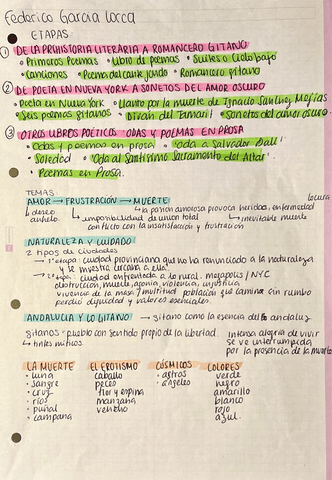 Federico García Lorca
ETAPAS
① DE LA PREHISTORIA LITERARIA A ROMANCERO GITANO
• Primeros Poemas • Libro de poemas • Suites o Ciclo bajo
• Canciones • Poema del cante jondo • Romancero gitano
② DE POETA EN NUEVA YORK A SONETOS DEL AMOR OSCURO
• Poeta en Nueva York • Llanto por la muerte de Ignacio Sánchez Mejías
• Seis poemas gitanos • Divan del Tamarit • Sonetos del amor oscuro.
③ OTROS LIBROS POÉTICOS. ODAS Y POEMAS EN PROSA
• Odas y poemas en prosa • "Oda a Salvador Dalí"
• Soledad • "Oda al Santísimo Sacramento del Altar"
• Poemas en Prosa.
TEMAS
AMOR → FRUSTRACIÓN → MUERTE
locura
↳ la pasión amorosa provoca heridas, enfermedad
↳ deseo anhelo
↳ imposibilidad de unión total
↳ inevitable muerte
conflicto con la insatisfacción y frustración
NATURALEZA Y CIUDAD
2 tipos de ciudades
↳ 1ª etapa: ciudad provinciana que no ha renunciado a la naturaleza
y se muestra cercana a ella.
↳ 2ª etapa: ciudad enfrentada a lo rural. megapolis / NYC
destrucción, muerte, agonía, violencia, injusticia
vivencia de la masa / multitud población que camina sin rumbo
perdió dignidad y valores esenciales.
ANDALUCIA Y LO GITANO → gitano como la esencia de lo andaluz
gitanos - pueblo con sentido propio de la libertad.
↳ tintes míticos
intensa alegría de vivir
se ve interrumpida
por la presencia de la muerte
LA MUERTE EL EROTISMO CÓSMICOS COLORES
• luna caballo • astros verde
• sangre peces • ángeles negro
• cruz flor y espina amarillo
• ríos manzana blanco
• puñal veneno rojo
• campana azul.